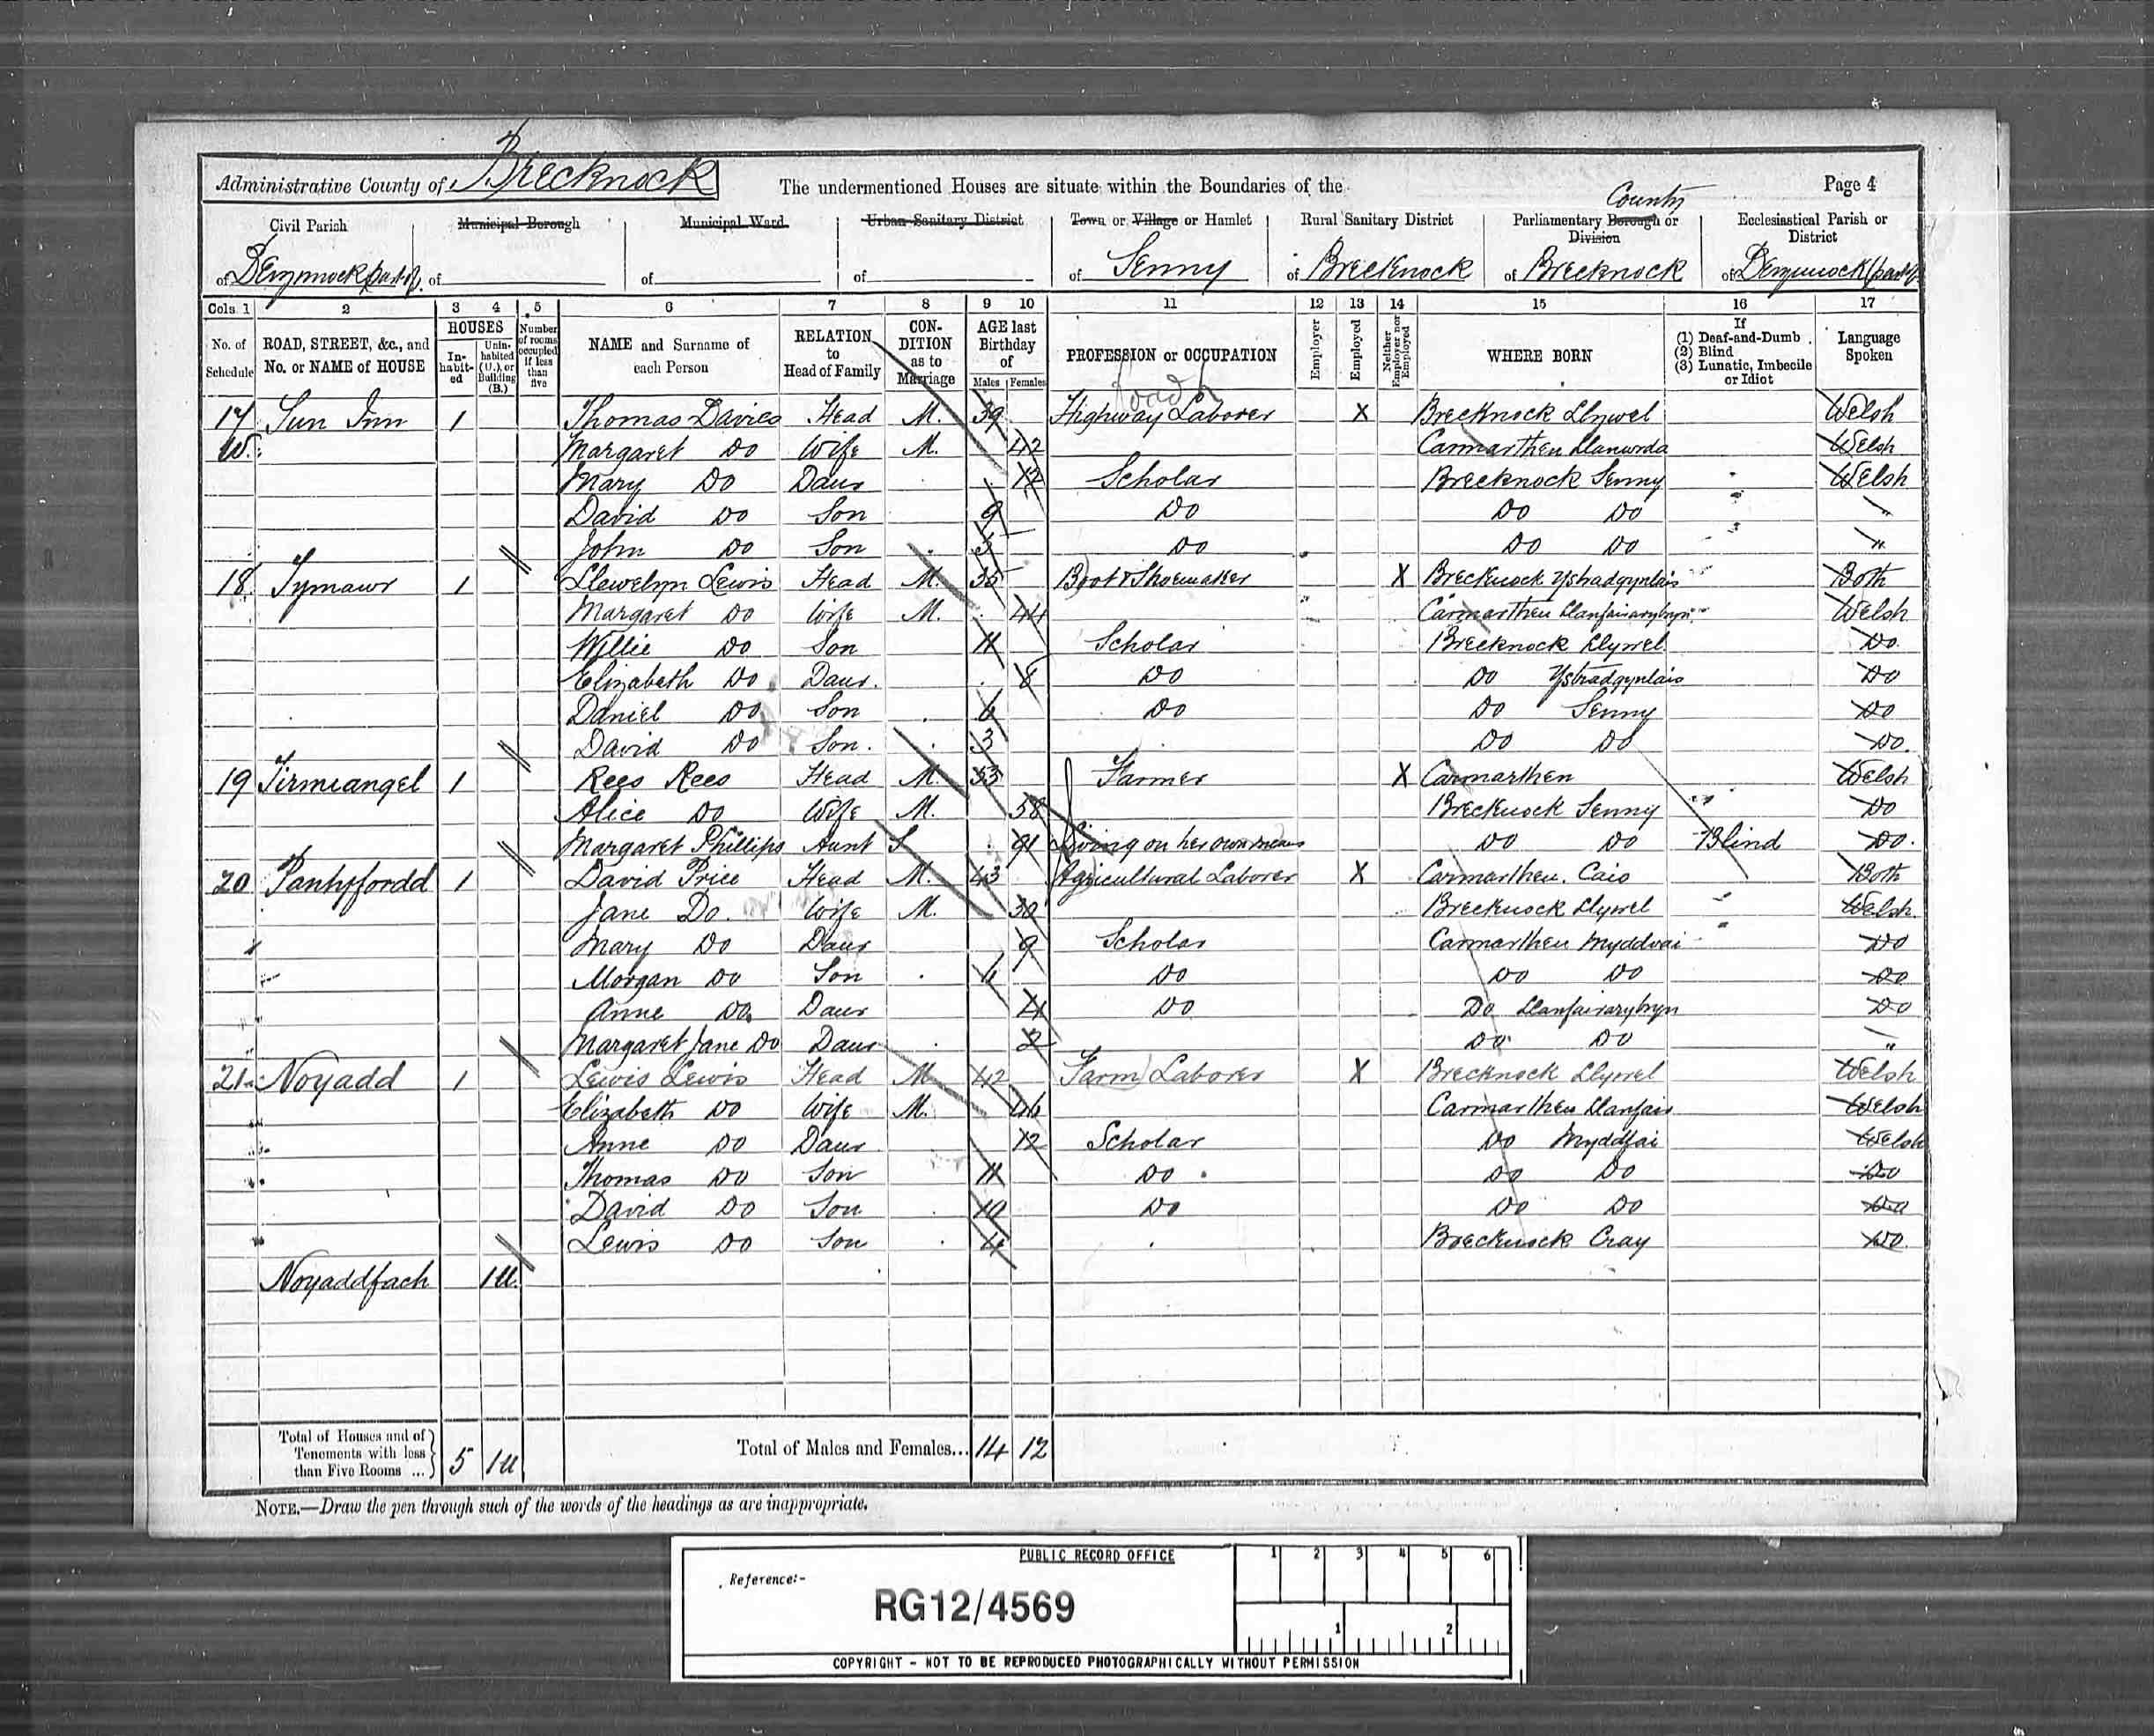 Administrative County of Brecknock The undermentioned Houses are situate within the Boundaries of the Page 4
Civil Parish Municipal Borough Municipal Ward Urban Sanitary District Town or Village or Hamlet Rural Sanitary District Parliamentary Borough or Division County Ecclesiastical Parish or District
of Devynnock part of of of of of Senny of Brecknock of Brecknock of Devynnock (part of
Cols. 1 2 3 4 5 6 7 8 9 10 11 12 13 14 15 16 17
No. of Schedule ROAD, STREET, &c., and No. or NAME of HOUSE HOUSES Inhabited Uninhabited (U.), or Building (B.) Number of rooms occupied if less than five NAME and Surname of each Person RELATION to Head of Family CONDITION as to Marriage AGE last Birthday of Males Females PROFESSION or OCCUPATION Employer Employed Neither Employer nor Employed WHERE BORN If (1) Deaf-and-Dumb (2) Blind (3) Lunatic, Imbecile or Idiot Language Spoken
Road
17 Sun Inn 1 Thomas Davies Head M. 39 Highway Laborer X Brecknock Llywel Welsh
Margaret Do Wife M. 42 Carmarthen Llanwrda Welsh
Mary Do Daur 12 Scholar Brecknock Senny Welsh
David Do Son 9 Do Do Do "
John Do Son 5 Do Do Do "
18 Tymawr 1 Llewelyn Lewis Head M. 35 Boot & Shoemaker X Brecknock Ystradgynlais Both
Margaret Do Wife M. 44 Carmarthen Llanfairarybryn Welsh
Willie Do Son 11 Scholar Brecknock Llywel Do
Elizabeth Do Daur. 8 Do Do Ystradgynlais Do
Daniel Do Son 6 Do Do Senny Do
David Do Son. 3 Do Do Do.
19 Tirmeangel 1 Rees Rees Head M. 53 Farmer X Carmarthen Welsh
Alice Do Wife M. 58 Brecknock Senny Do
Margaret Phillips Aunt S 91 Living on her own means Do Do Blind Do.
20 Pantyffordd 1 David Price Head M. 43 Agricultural Laborer X Carmarthen. Caio Both
Jane Do. Wife M. 30 Brecknock Llywel Welsh
Mary Do Daur 9 Scholar Carmarthen Myddvai Do
Morgan Do Son 6 Do Do Do Do
Anne Do Daur 4 Do Do Llanfairarybryn Do
Margaret Jane Do Daur 2 Do Do "
21 Noyadd 1 Lewis Lewis Head M 42 Farm Laborer X Brecknock Llywel Welsh
Elizabeth Do Wife M. 46 Carmarthen Llanfair Welsh
Anne Do Daur 12 Scholar Do Myddfai Welsh
Thomas Do Son 11 Do Do Do Do
David Do Son 10 Do Do Do Do
Lewis Do Son 4 Brecknock Cray Do
Noyaddfach 1U.
Total of Houses and of Tenements with less than Five Rooms ... 5 1U Total of Males and Females... 14 12
NOTE.—Draw the pen through such of the words of the headings as are inappropriate.
PUBLIC RECORD OFFICE 1 2 3 4 5 6
Reference:-
RG12/4569
1 2
COPYRIGHT - NOT TO BE REPRODUCED PHOTOGRAPHICALLY WITHOUT PERMISSION